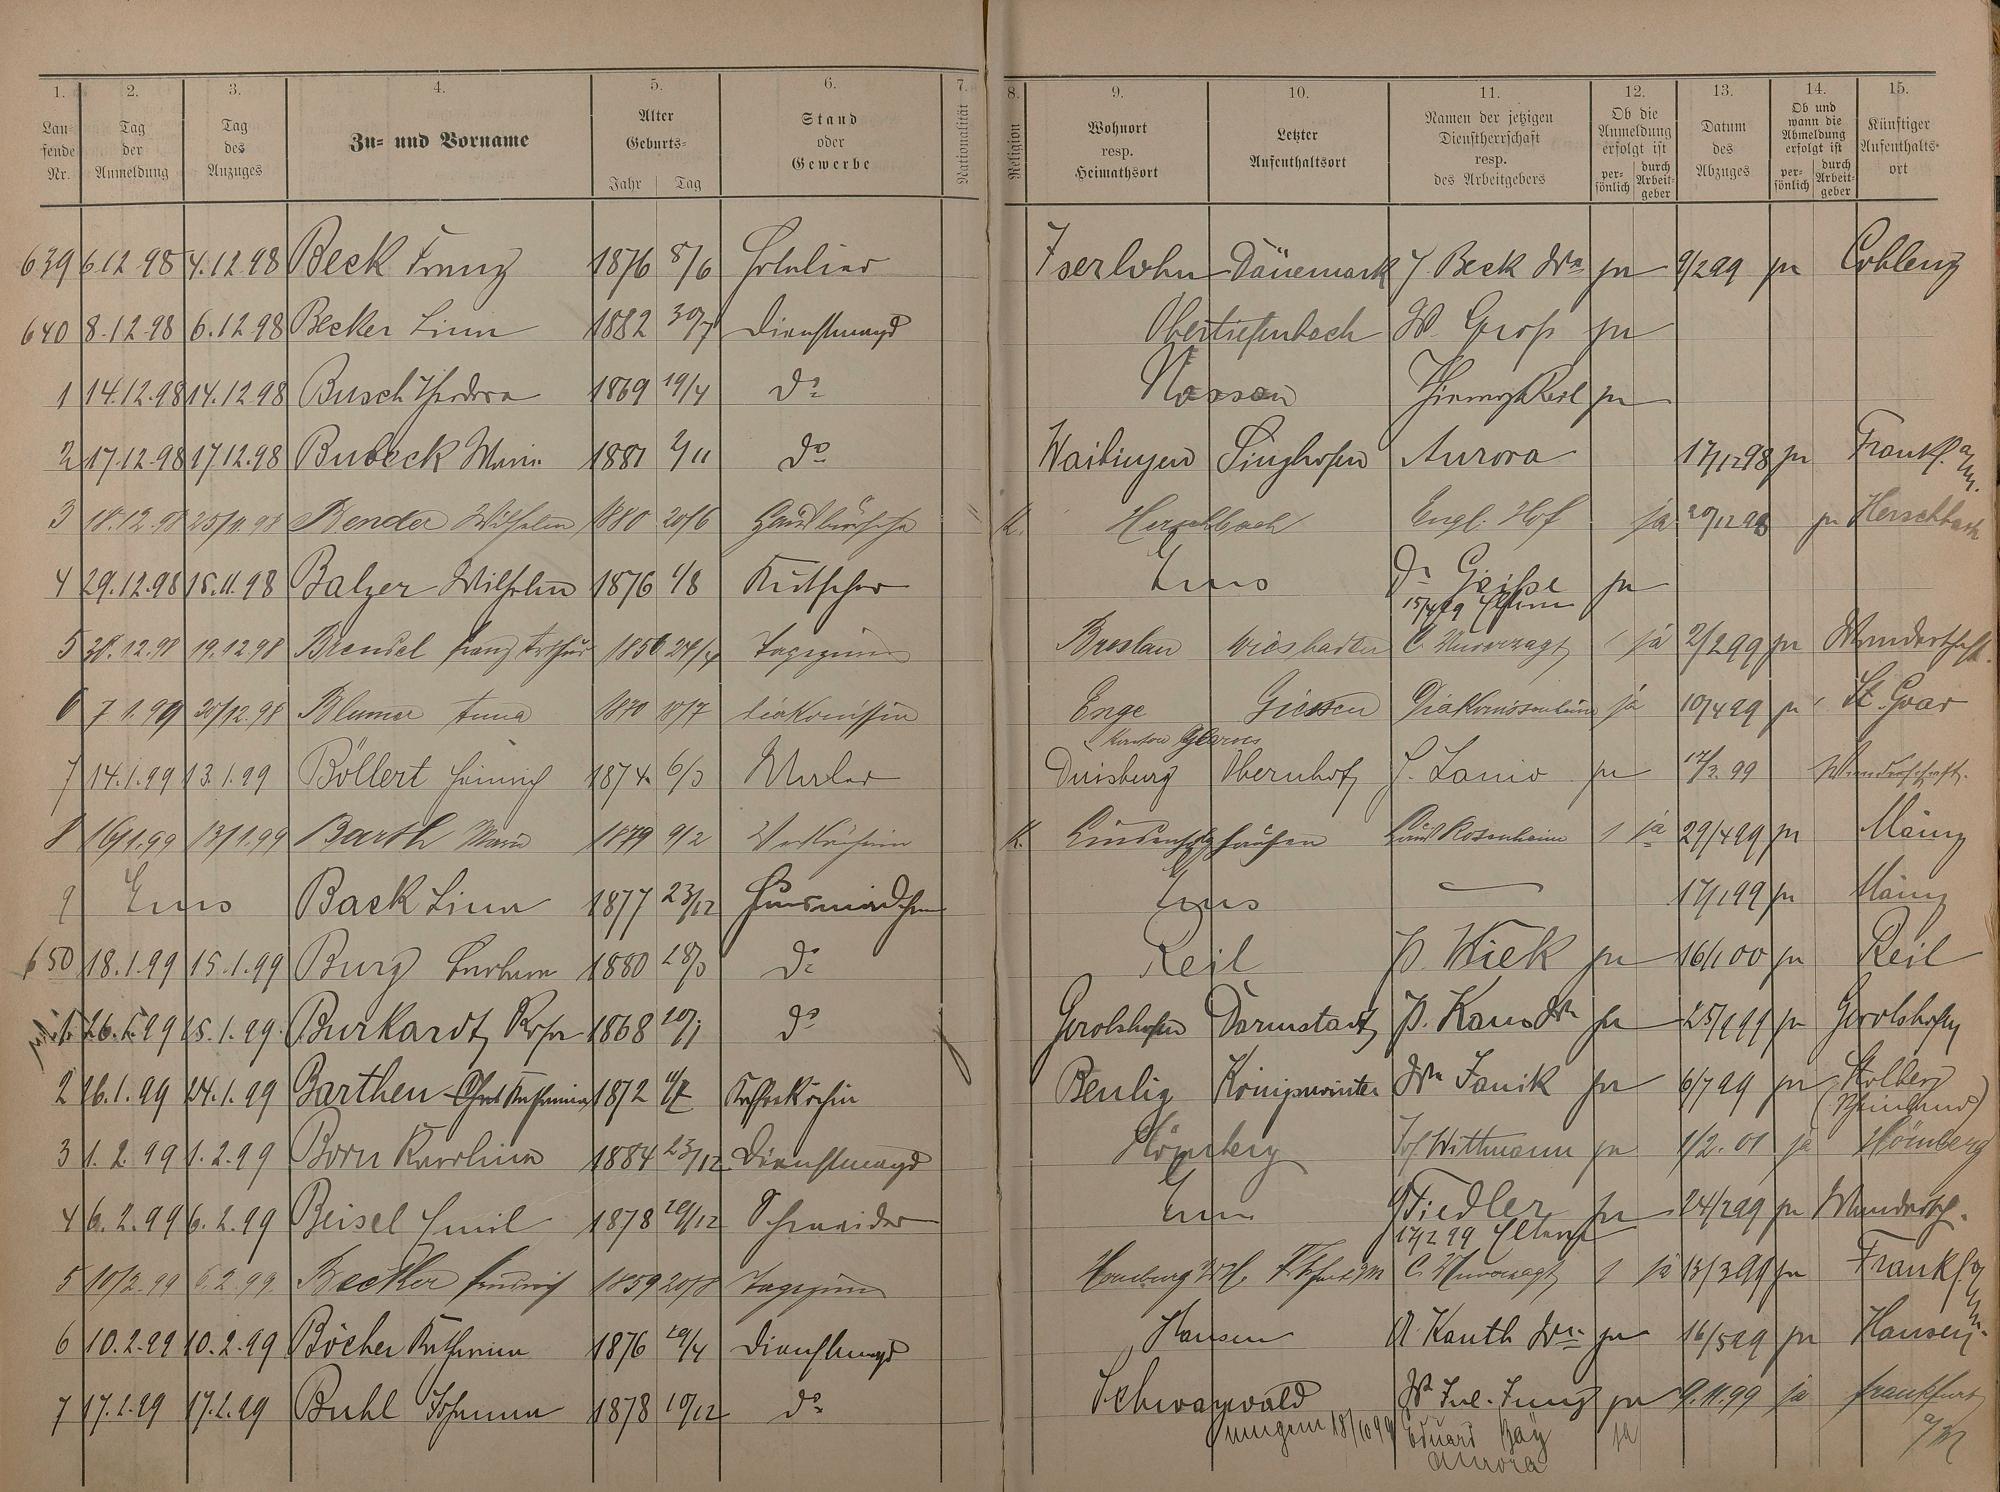 1. 2. 3. 4. 5. 6. 7. 8. 9. 10. 11. 12. 13. 14. 15.
Laufende Nr. | Tag der Anmeldung | Tag des Anzuges | Zu- und Vorname | Alter Geburts- Jahr Tag | Stand oder Gewerbe | Nationalität | Religion | Wohnort resp. Heimathsort | Letzter Aufenthaltsort | Namen der jetzigen Dienstherrschaft resp. des Arbeitgebers | Ob die Anmeldung erfolgt ist persönlich durch Arbeitgeber | Datum des Abzuges | Ob und wann die Abmeldung erfolgt ist persönlich durch Arbeitgeber | Künftiger Aufenthaltsort
639 6.12 98 4.12.98 Beck Franz 1876 8/6 Hotelier Iserlohn Dänemark J. Beck Ww ja 9/2 99 ja Coblenz
640 8.12.98 6.12.98 Becker Lina 1882 30/7 Dienstmagd Obertiefenbach W. Groß ja
1 14.12.98 14.12.98 Busch Theodora 1869 19/4 do Nassau ja
2 17.12.98 17.12.98 Bubeck Marie 1881 2/11 do Waiblingen Singhofen Aurora 17/12 98 ja Frankf. a/M.
3 18.12.98 25/11.98 Bender Wilhelm 1880 20/6 Hausbursche K. Herschbach Engl. Hof ja 20/12 98 ja Herschbach
4 29.12.98 15.11.98 Balzer Wilhelm 1876 4/8 Kutscher Ems Dr Geiße ja
15/4 99 Eltern
5 30.12.98 19.12.98 Brendel Franz Arthur 1856 24/4 Breslau Wiesbaden C. Unverzagt 1 ja 2/2 99 ja Wanderschaft.
6 7.1.99 30/12.98 Blumer Anna 1870 18/7 Diakonissin Enge Giessen Diakonissenheim ja 10/4 99 ja St. Goar
Kanton Glarus
7 14.1.99 13.1.99 Böllert Heinrich 1874 6/3 Maler Duisburg Obernhof J. Lanio ja 12/2.99 Wanderschaft.
8 16/1.99 13/1.99 Barth Marie 1879 9/2 Verkäuferin K. Lindenholzhausen Haus Rosenheim 1 ja 29/4 99 ja Mainz
9 Ems Back Lina 1877 23/12 Hausmädchen Ems 17/1 99 ja Mainz
650 18.1.99 15.1.99 Burg Barbara 1880 28/3 do Reil P. Wiek ja 16/1 00 ja Reil
1 26.1.99 25.1.99. Burkardt Rosa 1868 20/1 do Gerolshofen Darmstadt P. Kaus Ww ja 25/9 99 ja Gerolshofen
2 26.1.99 24.1.99 Barthen Katharina 1872 Kaffeeköchin Benlig Königswinter Ww Janik ja 6/7 99 ja Stolberg
(Rheinland)
3 1.2.99 1.2.99 Born Karolina 1884 23/12 Dienstmagd Hömberg Jos. Wittmann ja 1/2.01 ja Hömberg
4 6.2.99 6.2.99 Beisel Emil 1878 20/12 Schneider Ems Fiedler ja 24/2 99 ja Wandersch.
17/2 99 Eltern
5 10/2.99 6.2.99. Becker Heinrich 1859 20/8 C. Unverzagt 1 ja 13/3 99 ja Frankf. a/M.
6 10.2.99 10.2.99 Böcher Katharina 1876 20/4 Dienstmagd Hausen A. Kauth Ww ja 16/5 99 ja Hausen
7 17.2.99 17.2.99 Buhl Johanna 1878 10/12 do Schwarzwald Jul. Jung ja 9.11.99 ja Frankfurt
18/10 99 Eduard Bay ja a/M
Aurora